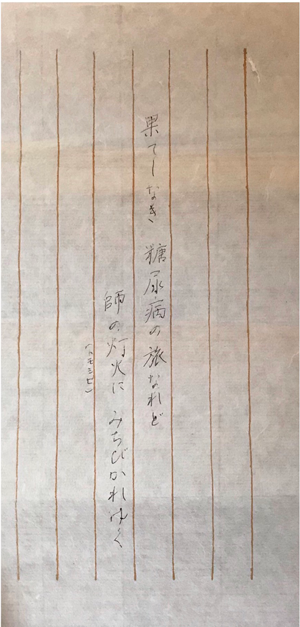 果てしなき 糖尿病の旅なれど
師の灯火に みちびかれゆく
(トモシビ)